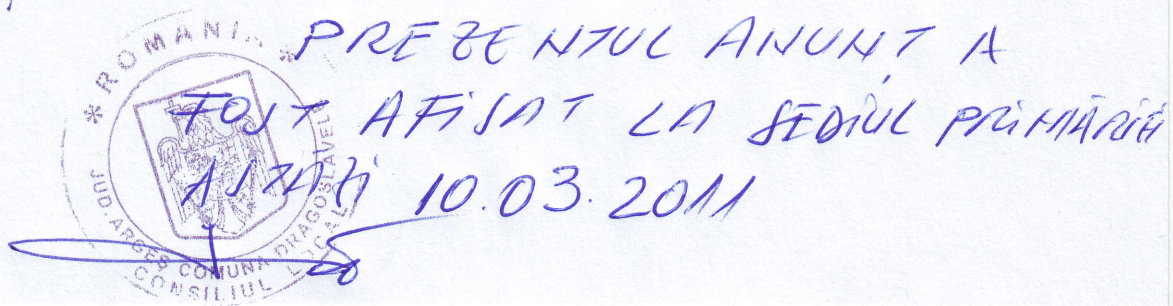 PREZENTUL ANUNT A
FOST AFISAT LA SEDIUL PRIMĂRIEI
ASTĂZI 10.03.2011
* ROMANIA *
JUD. ARGEȘ COMUNA DRAGOSLAVELE
CONSILIUL LOCAL